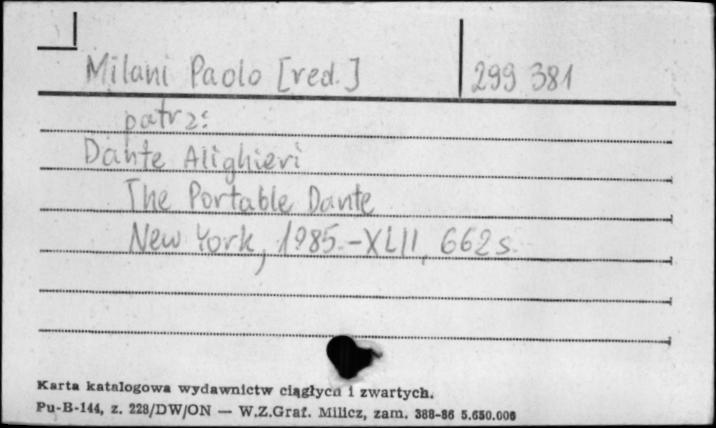 Milani Paolo [red.] 299 381
patrz:
Dante Alighieri
The Portable Dante
New York, 1985.-XLII, 662 s.
Karta katalogowa wydawnictw ciągłych i zwartych.
Pu-B-144, z. 228/DW/ON — W.Z.Graf. Milicz, zam. 388-86 5.650.000